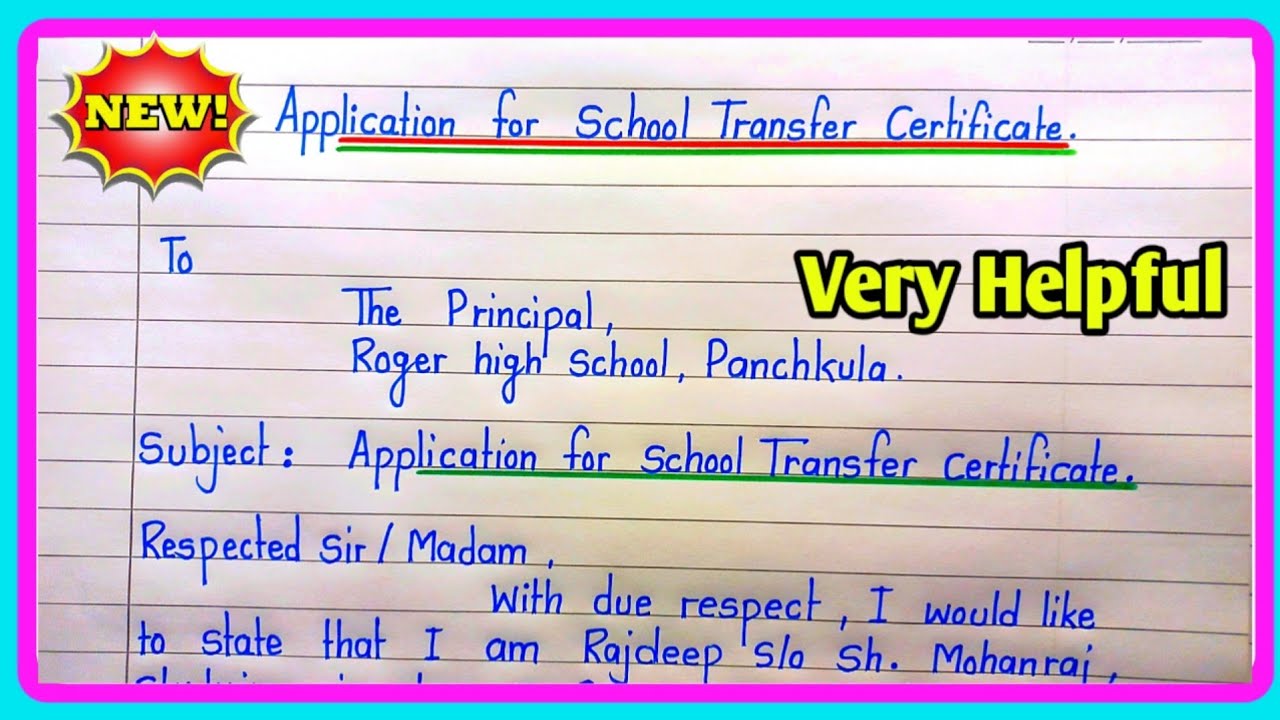 NEW!
Application for School Transfer Certificate.
To
Very Helpful
The Principal,
Roger high School, Panchkula.
Subject: Application for School Transfer Certificate.
Respected Sir / Madam,
With due respect, I would like
to state that I am Rajdeep S/o Sh. Mohanraj,